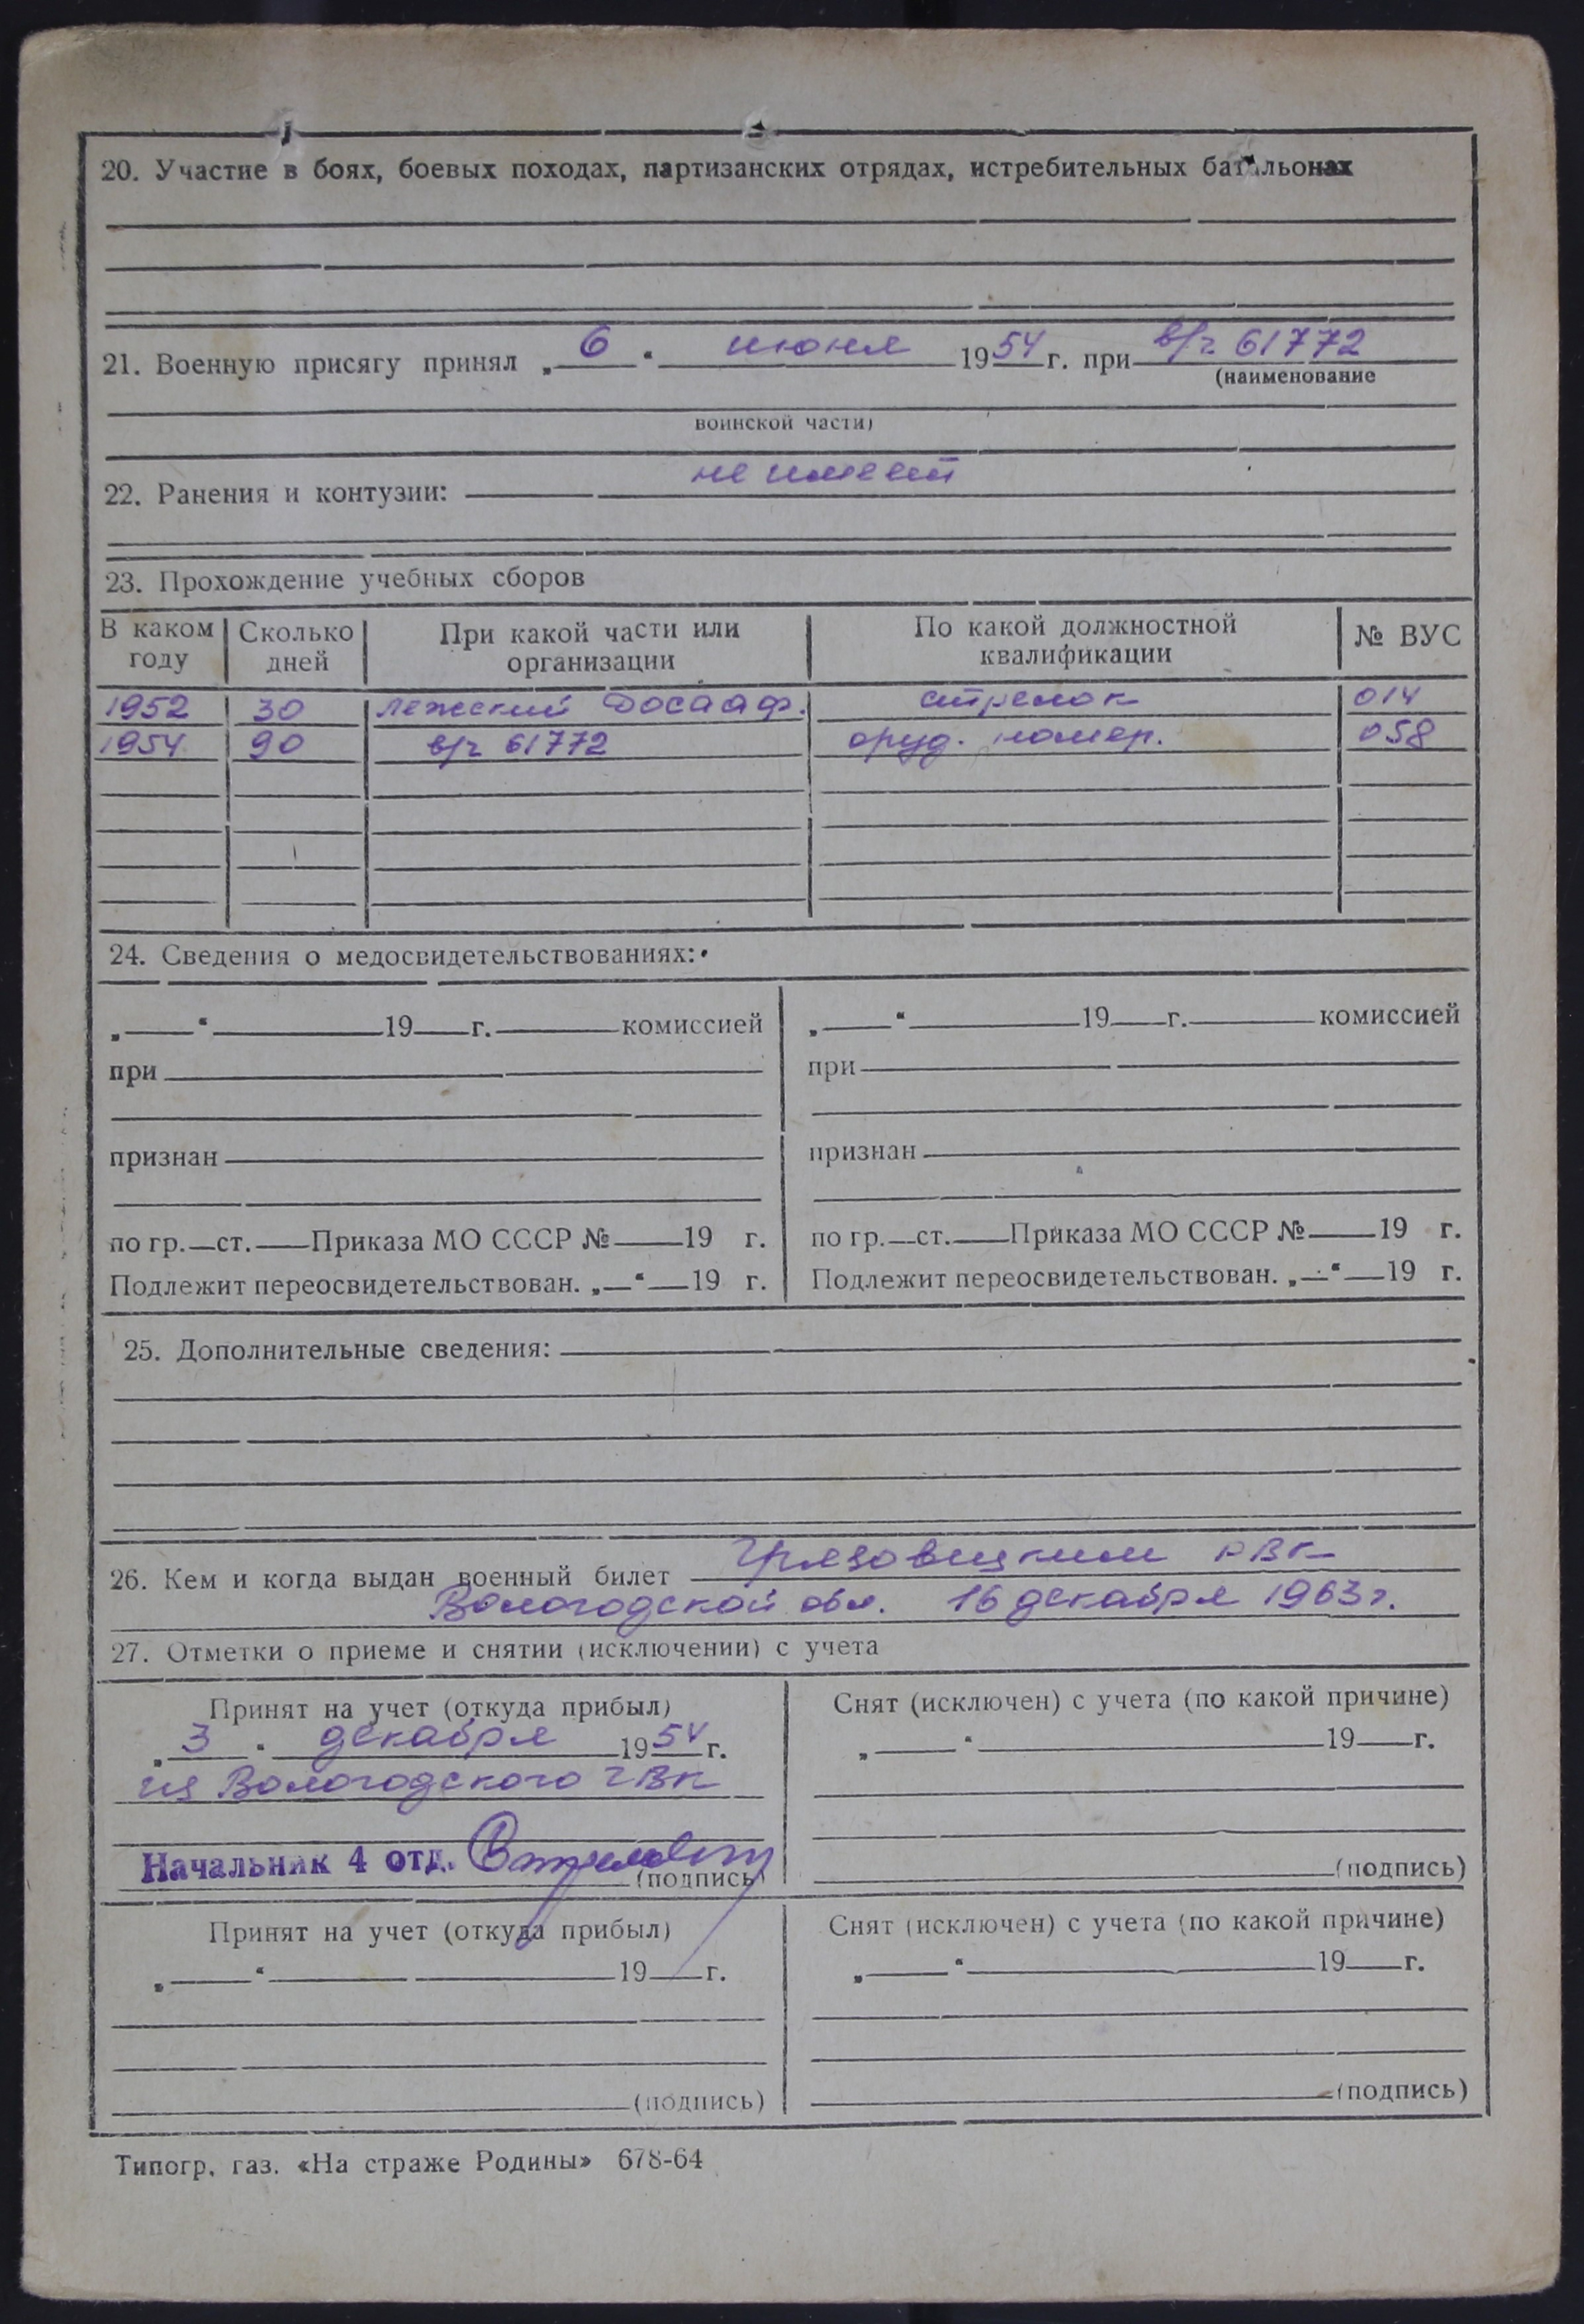 20. Участие в боях, боевых походах, партизанских отрядах, истребительных батальонах
21. Военную присягу принял „ 6 “ июня 1954 г. при в/ч 61772
(наименование
воинской части)
22. Ранения и контузии: не имеет
23. Прохождение учебных сборов
В каком году | Сколько дней | При какой части или организации | По какой должностной квалификации | № ВУС
1952 30 Лежский Досааф. стрелок 014
1954 90 в/ч 61772 оруд. номер. 058
24. Сведения о медосвидетельствованиях:
„ “ 19 г. комиссией
при
признан
по гр. ст. Приказа МО СССР № 19 г.
Подлежит переосвидетельствован. „ “ 19 г.
„ “ 19 г. комиссией
при
признан
по гр. ст. Приказа МО СССР № 19 г.
Подлежит переосвидетельствован. „ “ 19 г.
25. Дополнительные сведения:
26. Кем и когда выдан военный билет Грязовецким РВК
Вологодской обл. 16 декабря 1963 г.
27. Отметки о приеме и снятии (исключении) с учета
Принят на учет (откуда прибыл)
„ 3 “ декабря 1954 г.
из Вологодского ГВК
Начальник 4 отд.
(подпись)
Снят (исключен) с учета (по какой причине)
„ “ 19 г.
(подпись)
Принят на учет (откуда прибыл)
„ “ 19 г.
(подпись)
Снят (исключен) с учета (по какой причине)
„ “ 19 г.
(подпись)
Типогр. газ. «На страже Родины» 678-64